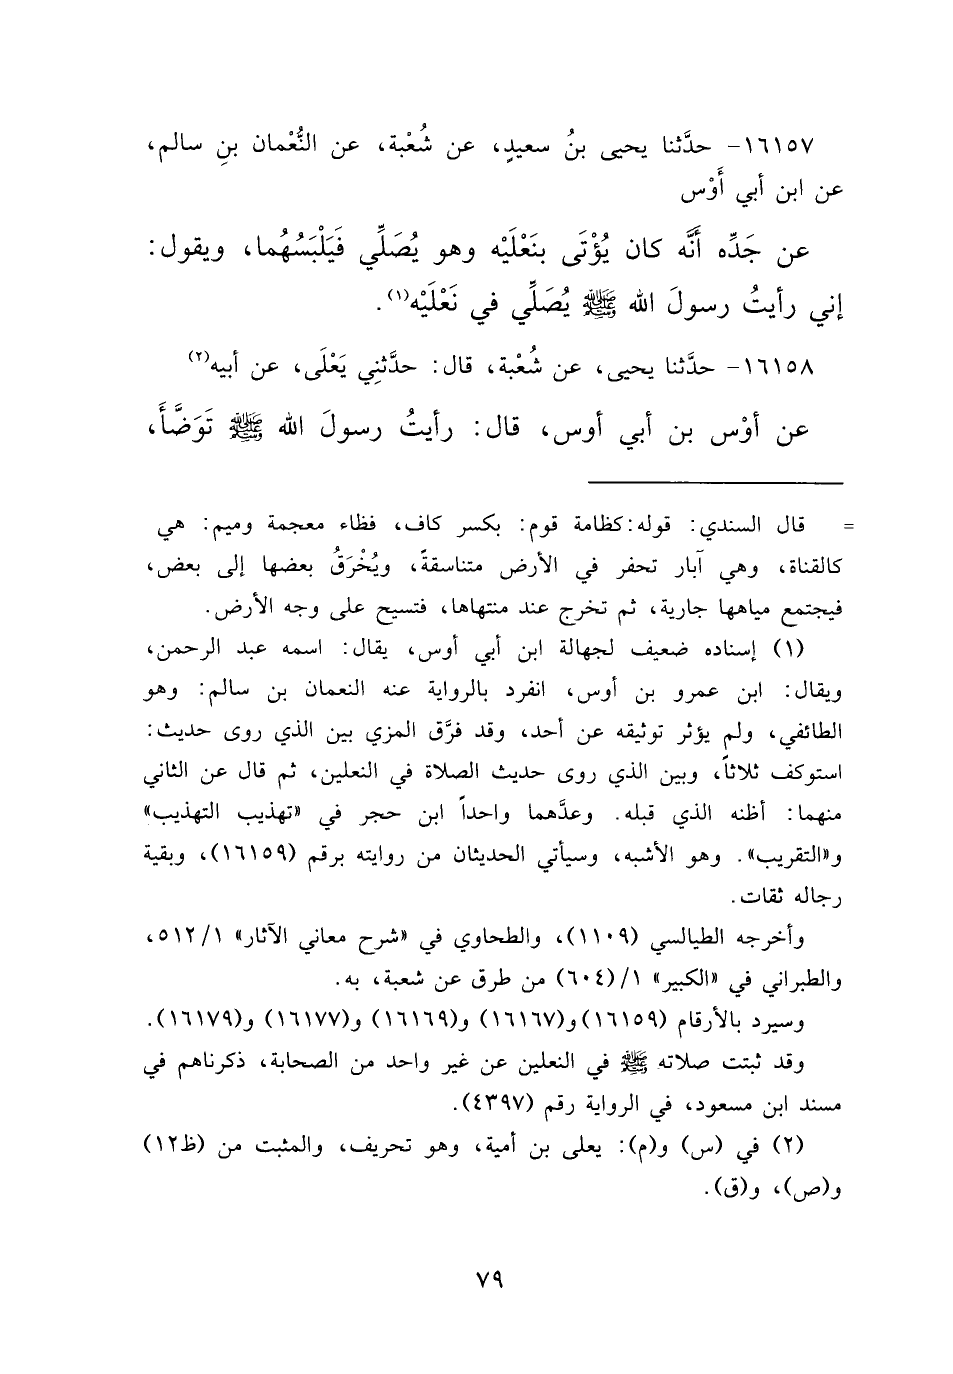 ١٦١٥٧- حدَّثنا يحيى بنُ سعيدٍ، عن شُعْبة، عن النُّعْمان بنِ سالم،
عن ابن أبي أَوْس
عن جَدِّه أنَّه كان يُؤْتَى بنَعْلَيْه وهو يُصَلِّي فَيَلْبَسُهُما، ويقول:
إني رأيتُ رسولَ الله ﷺ يُصَلِّي في نَعْلَيْه(١).
١٦١٥٨- حدَّثنا يحيى، عن شُعْبة، قال: حدَّثنِي يَعْلَى، عن أبيه(٢)
عن أوْس بن أبي أوس، قال: رأيتُ رسولَ الله ﷺ تَوَضَّأَ،
= قال السندي: قوله:كظامة قوم: بكسر كاف، فظاء معجمة وميم: هي
كالقناة، وهي آبار تحفر في الأرض متناسقةً، ويُخْرَقُ بعضها إلى بعض،
فيجتمع مياهها جارية، ثم تخرج عند منتهاها، فتسيح على وجه الأرض.
(١) إسناده ضعيف لجهالة ابن أبي أوس، يقال: اسمه عبد الرحمن،
ويقال: ابن عمرو بن أوس، انفرد بالرواية عنه النعمان بن سالم: وهو
الطائفي، ولم يؤثر توثيقه عن أحد، وقد فرَّق المزي بين الذي روى حديث:
استوكف ثلاثاً، وبين الذي روى حديث الصلاة في النعلين، ثم قال عن الثاني
منهما: أظنه الذي قبله. وعدَّهما واحداً ابن حجر في «تهذيب التهذيب»
و«التقريب». وهو الأشبه، وسيأتي الحديثان من روايته برقم (١٦١٥٩)، وبقية
رجاله ثقات.
وأخرجه الطيالسي (١١٠٩)، والطحاوي في «شرح معاني الآثار» ٥١٢/١،
والطبراني في «الكبير» ١/(٦٠٤) من طرق عن شعبة، به.
وسيرد بالأرقام (١٦١٥٩) و(١٦١٦٧) و(١٦١٦٩) و(١٦١٧٧) و(١٦١٧٩).
وقد ثبتت صلاته ﷺ في النعلين عن غير واحد من الصحابة، ذكرناهم في
مسند ابن مسعود، في الرواية رقم (٤٣٩٧).
(٢) في (س) و(م): يعلى بن أمية، وهو تحريف، والمثبت من (ظ١٢)
و(ص)، و(ق).
٧٩